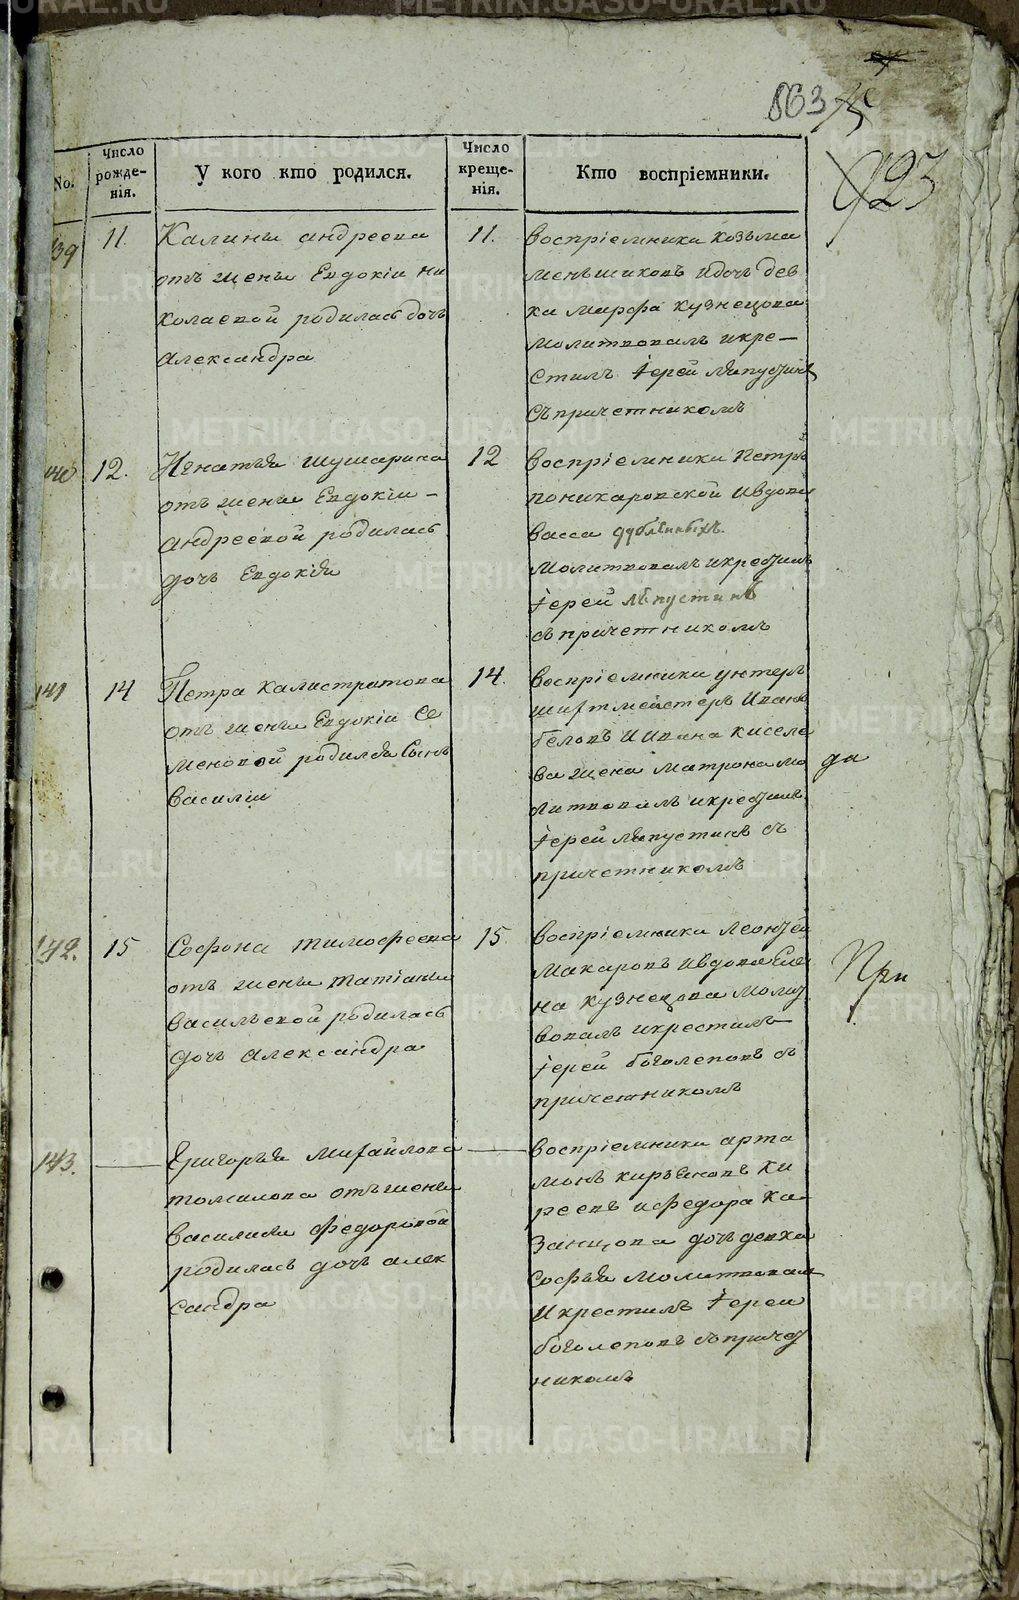 863
923
No.
Число рожденія.
У кого кто родился.
Число крещенія.
Кто воспріемники.
139
11.
Калины андреева
отъ жены Евдокіи ни
колаевой родилась дочь
александра
11.
воспріемники козьма
меньшиковъ идочь дев
ка марфа кузнецова
молитвовалъ икре–
стилъ іерей лапустинъ
съпричетникомъ
140
12.
Игнатья шушарина
отъ жены Евдокіи –
андреевой родилась
дочь Евдокія
12
воспріемники петръ
поникаровской ивдова
васса
молитвовалъ икрестилъ
іерей лапустинъ
съпричетникомъ
141
14
Петра калистратова
отъ жены Евдокіи Се
меновой родился Сынъ
василіи
14.
воспріемники унтеръ
шихтмейстеръ Иванъ
беловъ Иивана киселе
ва жена матрона мо
литвовалъ икрестилъ
іерей лапустинъ съ
причетникомъ
ди
142.
15
Софона тимофеева
отъ жены татіаны
васильевой родилась
дочь александра
15.
воспріемники леонтей
макаровъ ивдова Еле
на кузнецова молит
вовалъ икрестилъ
іерей боголеповъ съ
причетникомъ
При
143.
Григорья михайлова
томилова отъ жены
василисы федоровой
родилась дочь алек
сандра
воспріемники арта
монъ кирьяновъ ки
реевъ ифедора ка
занцова дочь девка
софья молитвовал
Икрестилъ іереи
боголеповъ съпричет
никомъ
METRIKI.GASO-URAL.RU